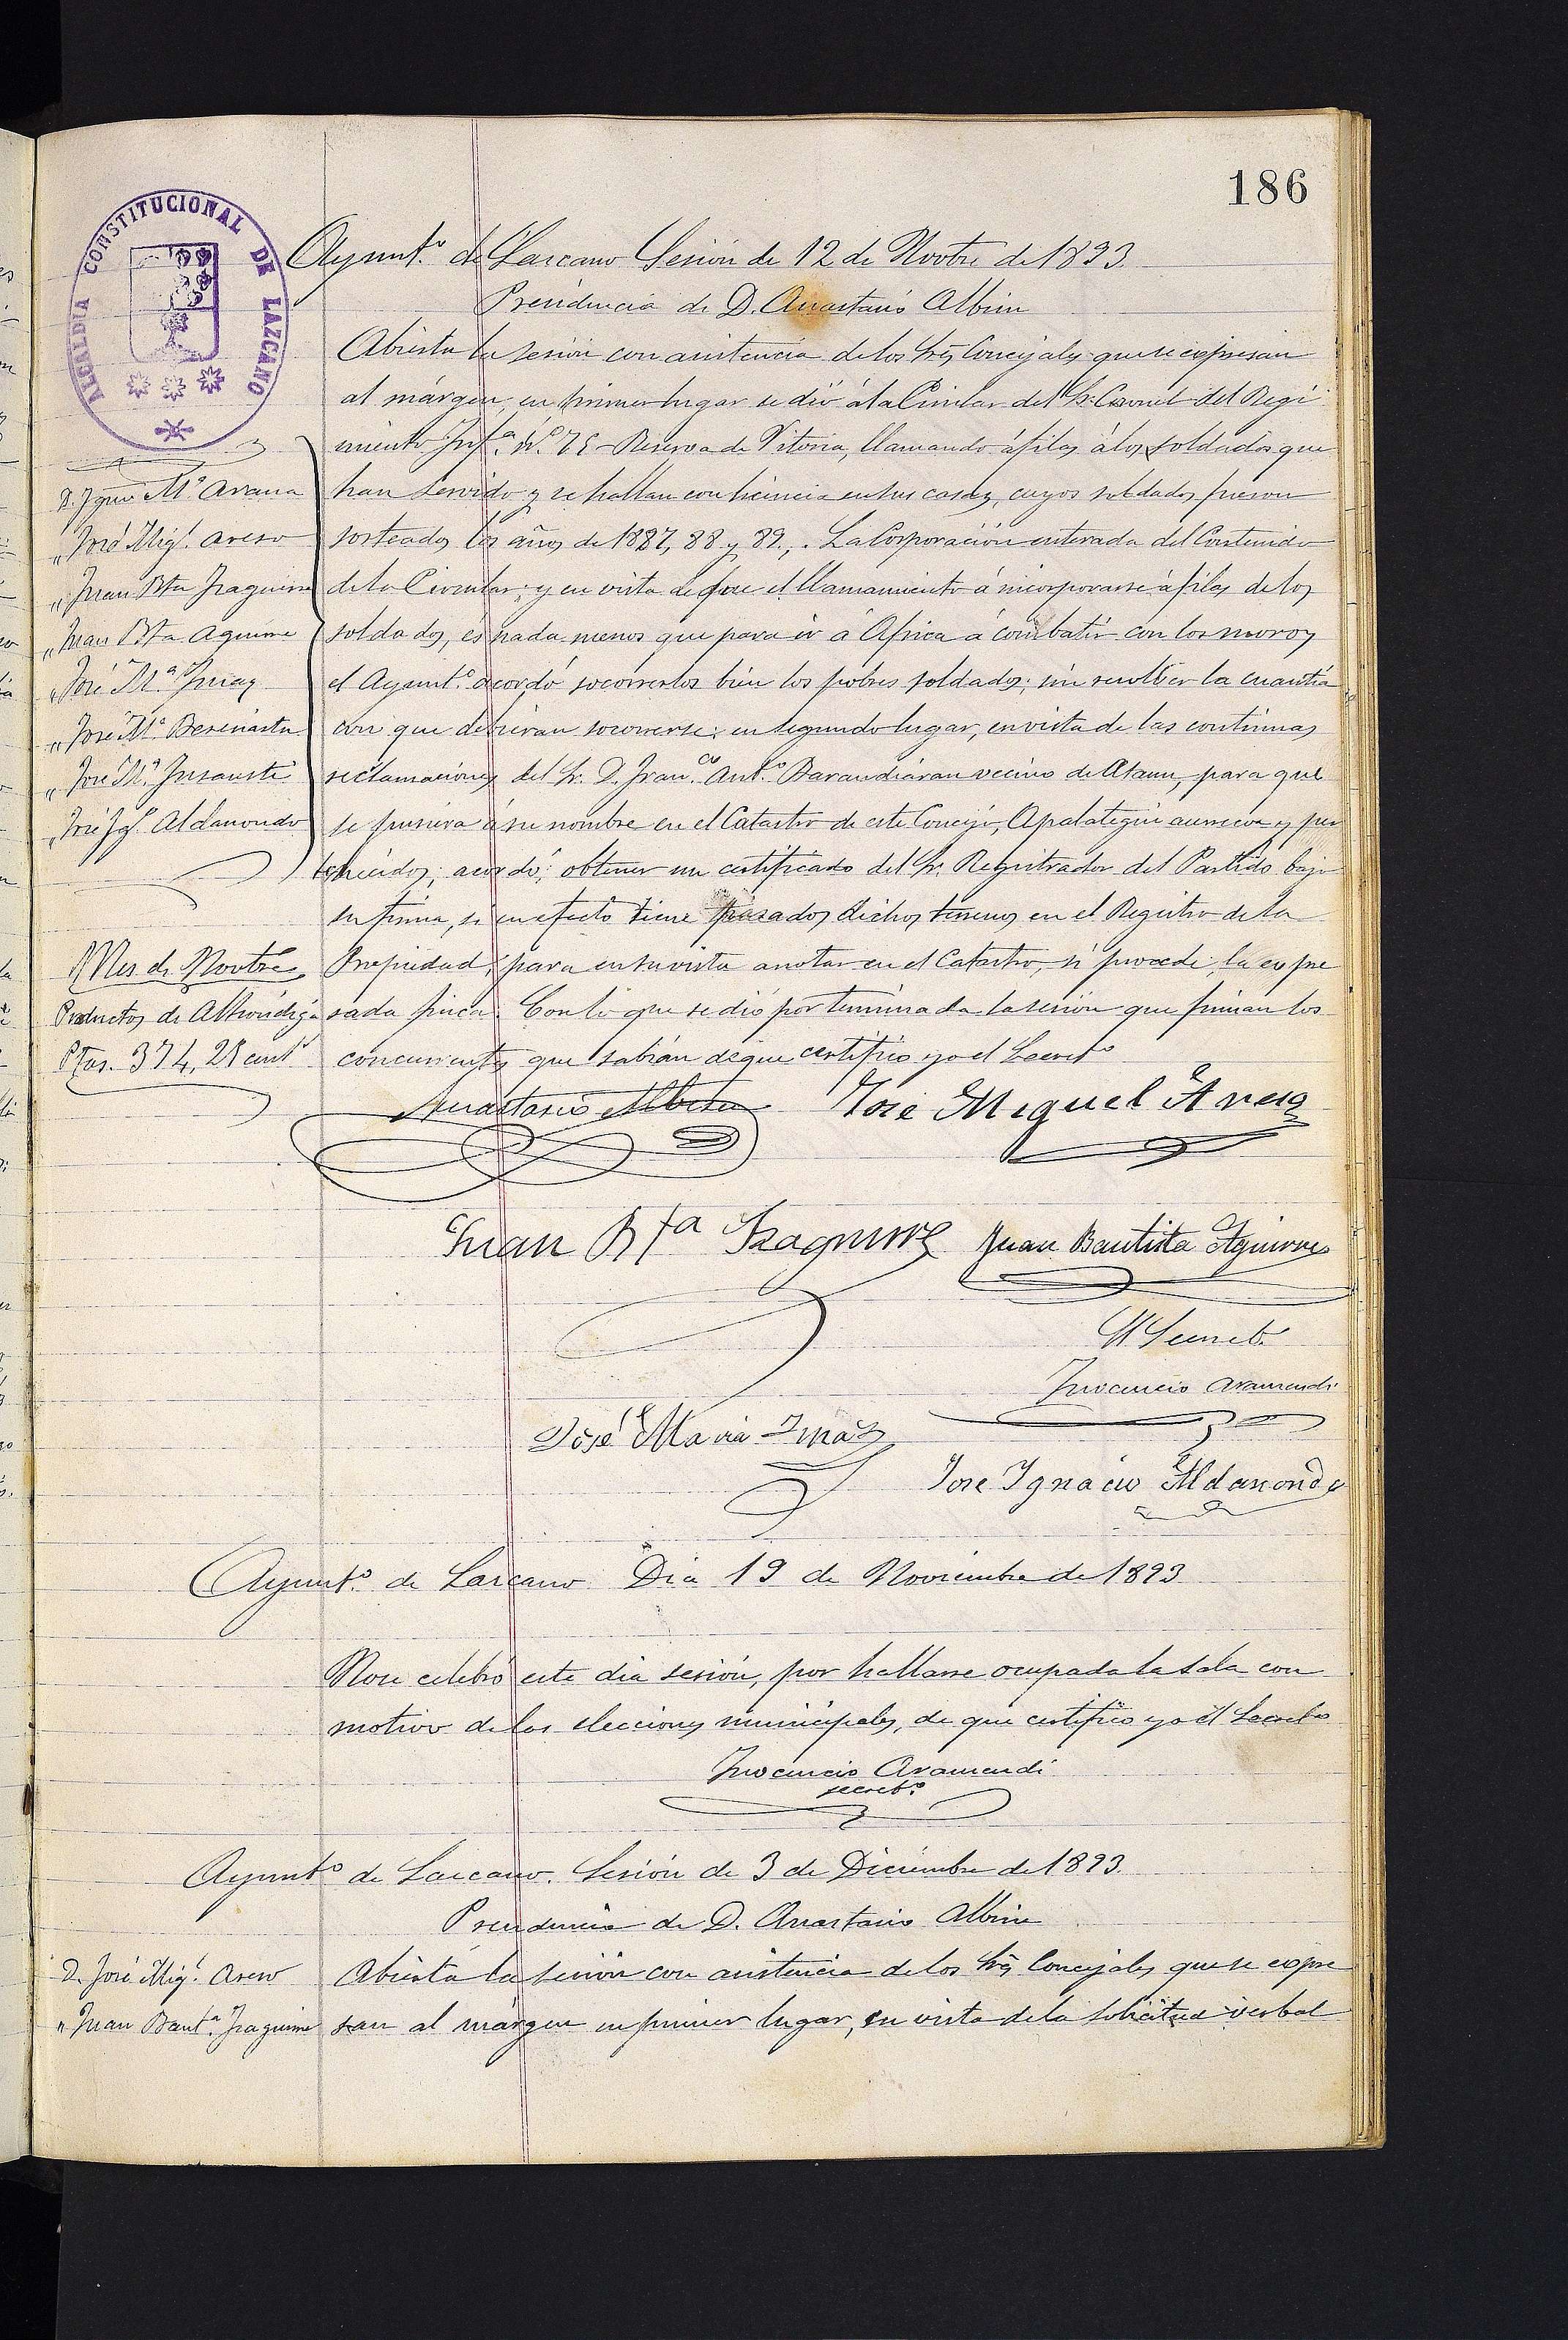 186
ALCALDIA CONSTITUCIONAL DE LAZCANO
Ayunt.º de Lazcano Sesión de 12 de Novbre de 1893.
Presidencia de D. Anastasio Albisu
Abierta la sesión con asistencia de los Srs Concejales que se expresan
al márgen, en primer lugar se dió á la Circular del Sr. Coronel del Regi
miento Inf.ª N.º 75 Reserva de Vitoria, llamando á filas á los soldados que
han servido y se hallan con licencia en sus casas, cuyos soldados fueron
sorteados los años de 1887, 88 y 89,. La Corporación enterada del Contenido
de la Circular; y en vista de que el llamamiento á incorporarse á filas de los
soldados, és nada menos que para ir á Africa á combatir con los moros
el Ayunt.º acordó socorrerlos bien los pobres soldados; sin resolver la cuantía
con que debieran socorrerse: en segundo lugar, en vista de las continuas
reclamaciones del Sr. D. Fran.co Ant.º Barandiáran vecino de Ataun, para que
se pusiera á su nombre en el Catastro de este Concejo, Apalategui aurrecoa y per
tenecidos; acordó: obtener un certificado del Sr. Registrador del Partido bajo
su firma, si en efecto tiene pasados dichos terrenos en el Registro de la
Propiedad, para en su vista anotar en el Catastro, si procede, la expre
sada finca. Con lo que se dió por terminada la sesión que firman los
concurrentes que sabián de que certifico yo el Secret.º
D. Ign.º M.ª Arana
„ José Mig.l Areso
„ Juan Bta Izaguirre
„ Juan Bta Aguirre
„ José M.ª Imaz
„ José M.ª Beresiartu
„ José M.ª Insausti
„ José Ig.º Aldanondo
Mes de Novbre
Productos de Alhóndiga
Ptas. 374, 25 cent.s
Anastasio Albisu José Miguel Areso
Juan Bta Izaguirre Juan Bautista Aguirre
El Secret.º
Inocencio Aramendi
José Maria Imaz
Jose Ignacio Aldanondo
Ayunt.º de Lazcano Dia 19 de Noviembre de 1893
No se celebró este dia sesión, por hallarse ocupada la sala con
motivo de las elecciones municipales, de que certifico yo el Secret.º
Inocencio Aramendi
secret.º
Ayunt.º de Lazcano. Sesión de 3 de Diciembre de 1893.
Presidencia de D. Anastasio Albisu
D. José Mig.l Areso
„ Juan Baut.ª Izaguirre
Abierta la sesión con asistencia de los Srs Concejales que se expre
san al márgen en primer lugar, en vista de la solicitud verbal